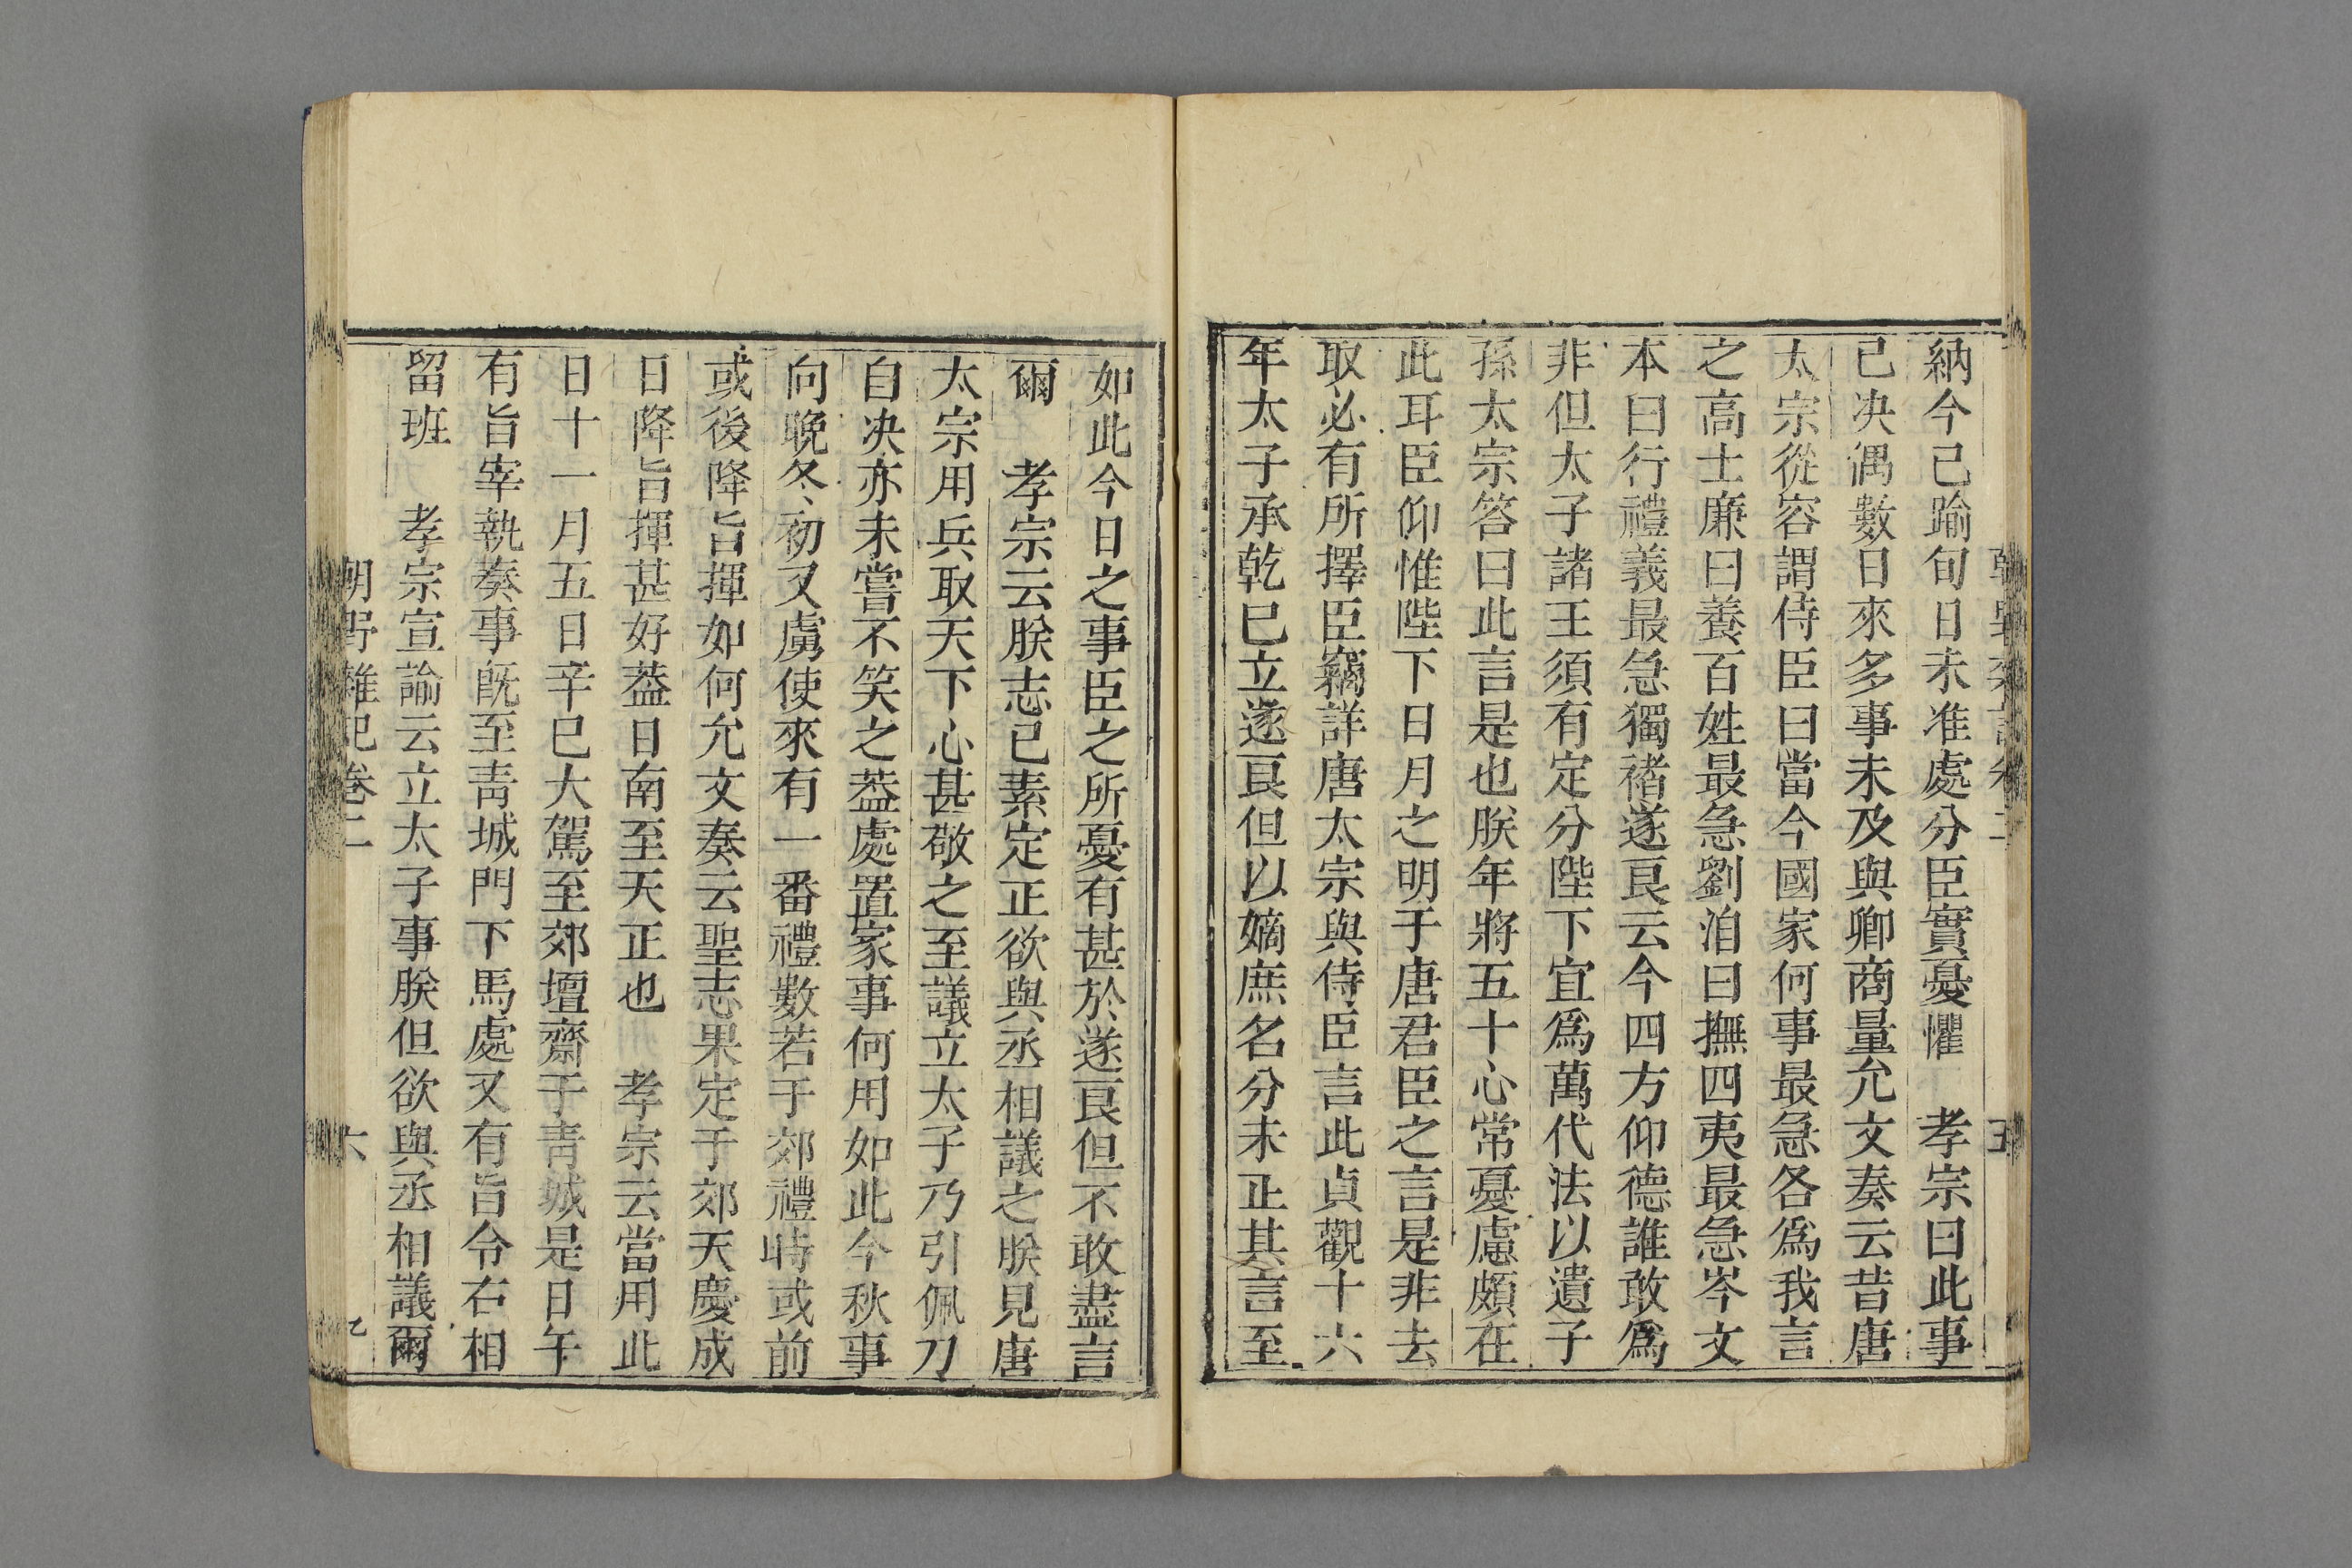 納今已踰旬日未准處分臣實憂懼　孝宗曰此事
已决偶數日來多事未及與卿商量允文奏云昔唐
太宗從容謂侍臣曰當今國家何事最急各爲我言
之高士廉曰養百姓最急劉洎曰撫四夷最急岑文
本曰行禮義最急獨褚遂良云今四方仰德誰敢爲
非但太子諸王須有定分陛下宜爲萬代法以遺子
孫太宗答曰此言是也朕年將五十心常憂慮頗在
此耳臣仰惟陛下日月之明于唐君臣之言是非去
取必有所擇臣竊詳唐太宗與侍臣言此貞觀十六
年太子承乾已立遂良但以嫡庶名分未正其言至
如此今日之事臣之所憂有甚於遂良但不敢盡言
爾　孝宗云朕志已素定正欲與丞相議之朕見唐
太宗用兵取天下心甚敬之至議立太子乃引佩刀
自决亦未嘗不笑之葢處置家事何用如此今秋事
向晚冬初又虜使來有一番禮數若于郊禮時或前
或後降旨揮如何允文奏云聖志果定于郊天慶成
日降旨揮甚好葢日南至天正也　孝宗云當用此
日十一月五日辛巳大駕至郊壇齋于青城是日午
有旨宰執奏事旣至靑城門下馬處又有旨令右相
留班　孝宗宣諭云立太子事朕但欲與丞相議爾
朝野雜記卷二　六　乙